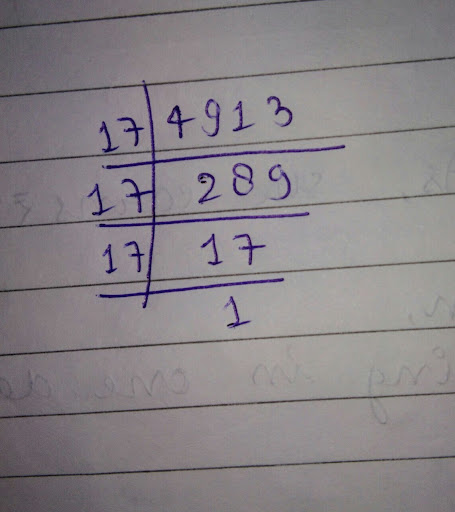 17 4913
17 289
17 17
1